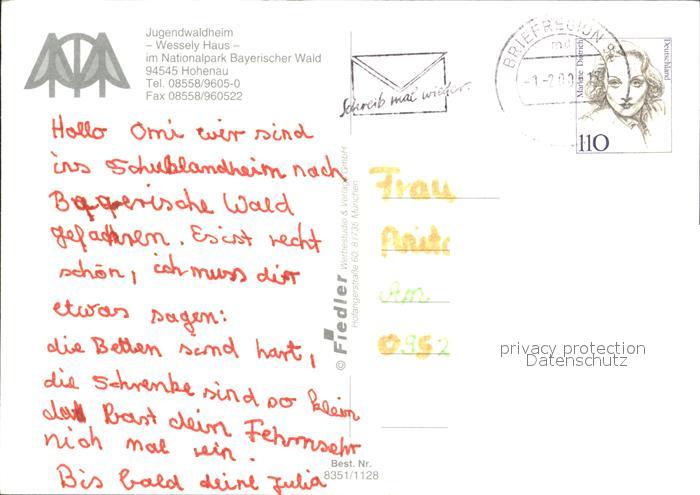 Jugendwaldheim
– Wessely Haus –
im Nationalpark Bayerischer Wald
94545 Hohenau
Tel. 08558/9605-0
Fax 08558/960522
Hallo Omi wir sind
ins Schullandheim nach
Bayerische Wald
gefahren. Es ist recht
schön, ich muss dir
etwas sagen:
die Betten sind hart,
die Schrenke sind so klein
da past dein Fehrnsehr
nich mal rein.
Bis bald deine Julia
© Fiedler Werbestudio & Verlags GmbH
Hofangerstraße 60, 81735 München
Best. Nr.
8351/1128
Schreib mal wieder.
BRIEFREGION
md
Marlene Dietrich
Deutschland
110
Frau
Anita
Am
privacy protection
Datenschutz